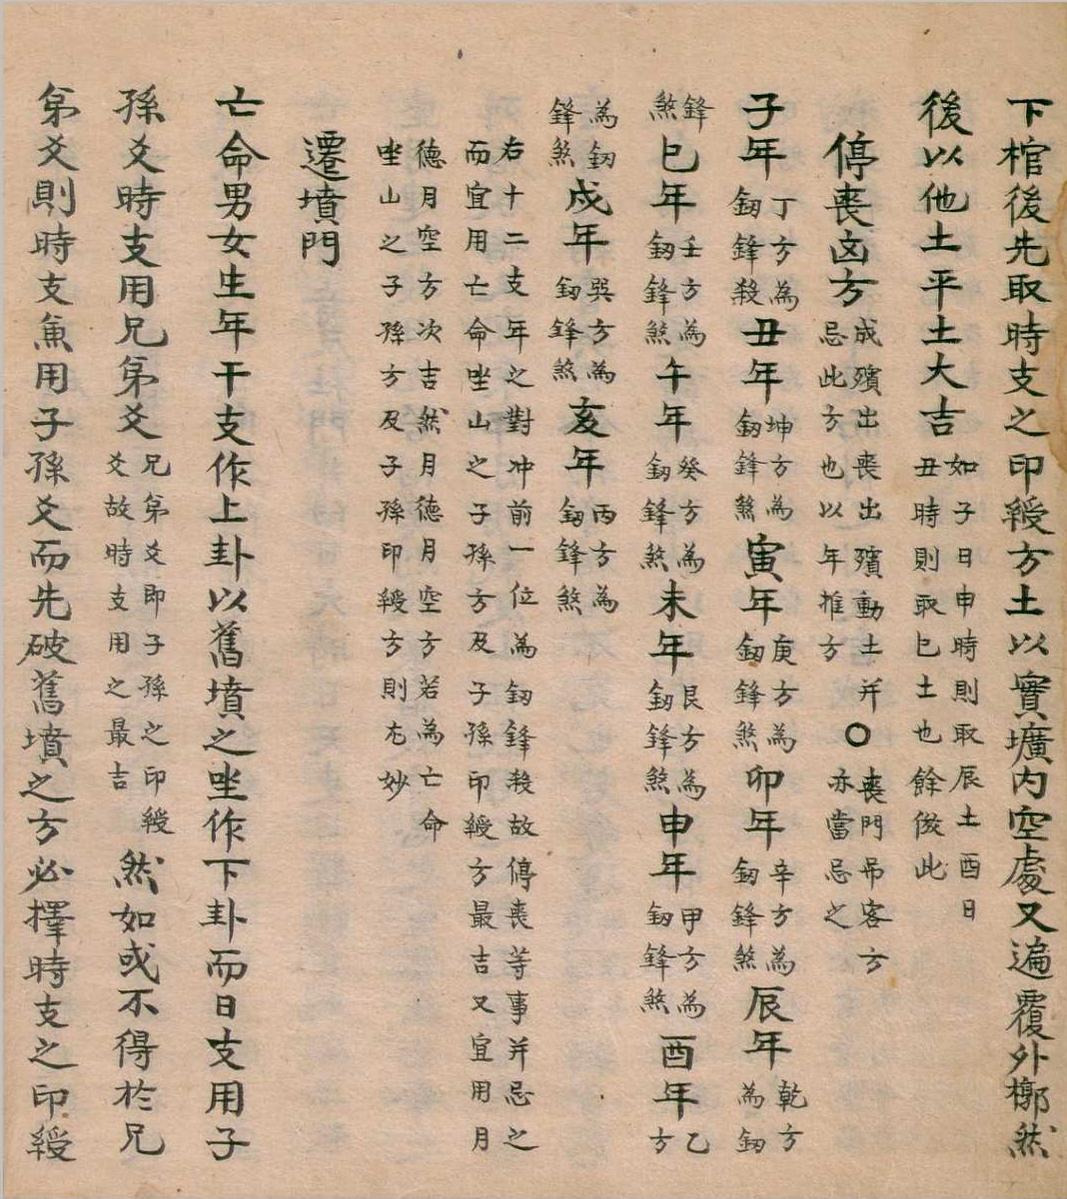 下棺後先取時支之印綬方土以實壙內空處又遍覆外槨然
後以他土平土大吉如子日申時則取辰土酉日丑時則取巳土也餘倣此
停喪凶方成殯出喪出殯動土并忌此方也以年推方○喪門吊客方亦當忌之
子年丁方為釰鋒殺丑年坤方為釰鋒煞寅年庚方為釰鋒煞卯年辛方為釰鋒煞辰年乾方為釰
鋒煞巳年壬方為釰鋒煞午年癸方為釰鋒煞未年艮方為釰鋒煞申年甲方為釰鋒煞酉年乙方
為釰鋒煞戌年巽方為釰鋒煞亥年丙方為釰鋒煞
右十二支年之對冲前一位為釰鋒殺故停喪等事并忌之
而宜用亡命坐山之子孫方及子孫印綬方最吉又宜用月
德月空方次吉然月德月空方若為亡命
坐山之子孫方及子孫印綬方則尤妙
遷墳門
亡命男女生年干支作上卦以舊墳之坐作下卦而日支用子
孫爻時支用兄弟爻兄弟爻即子孫之印綬爻故時支用之最吉然如或不得於兄
弟爻則時支兼用子孫爻而先破舊墳之方必擇時支之印綬